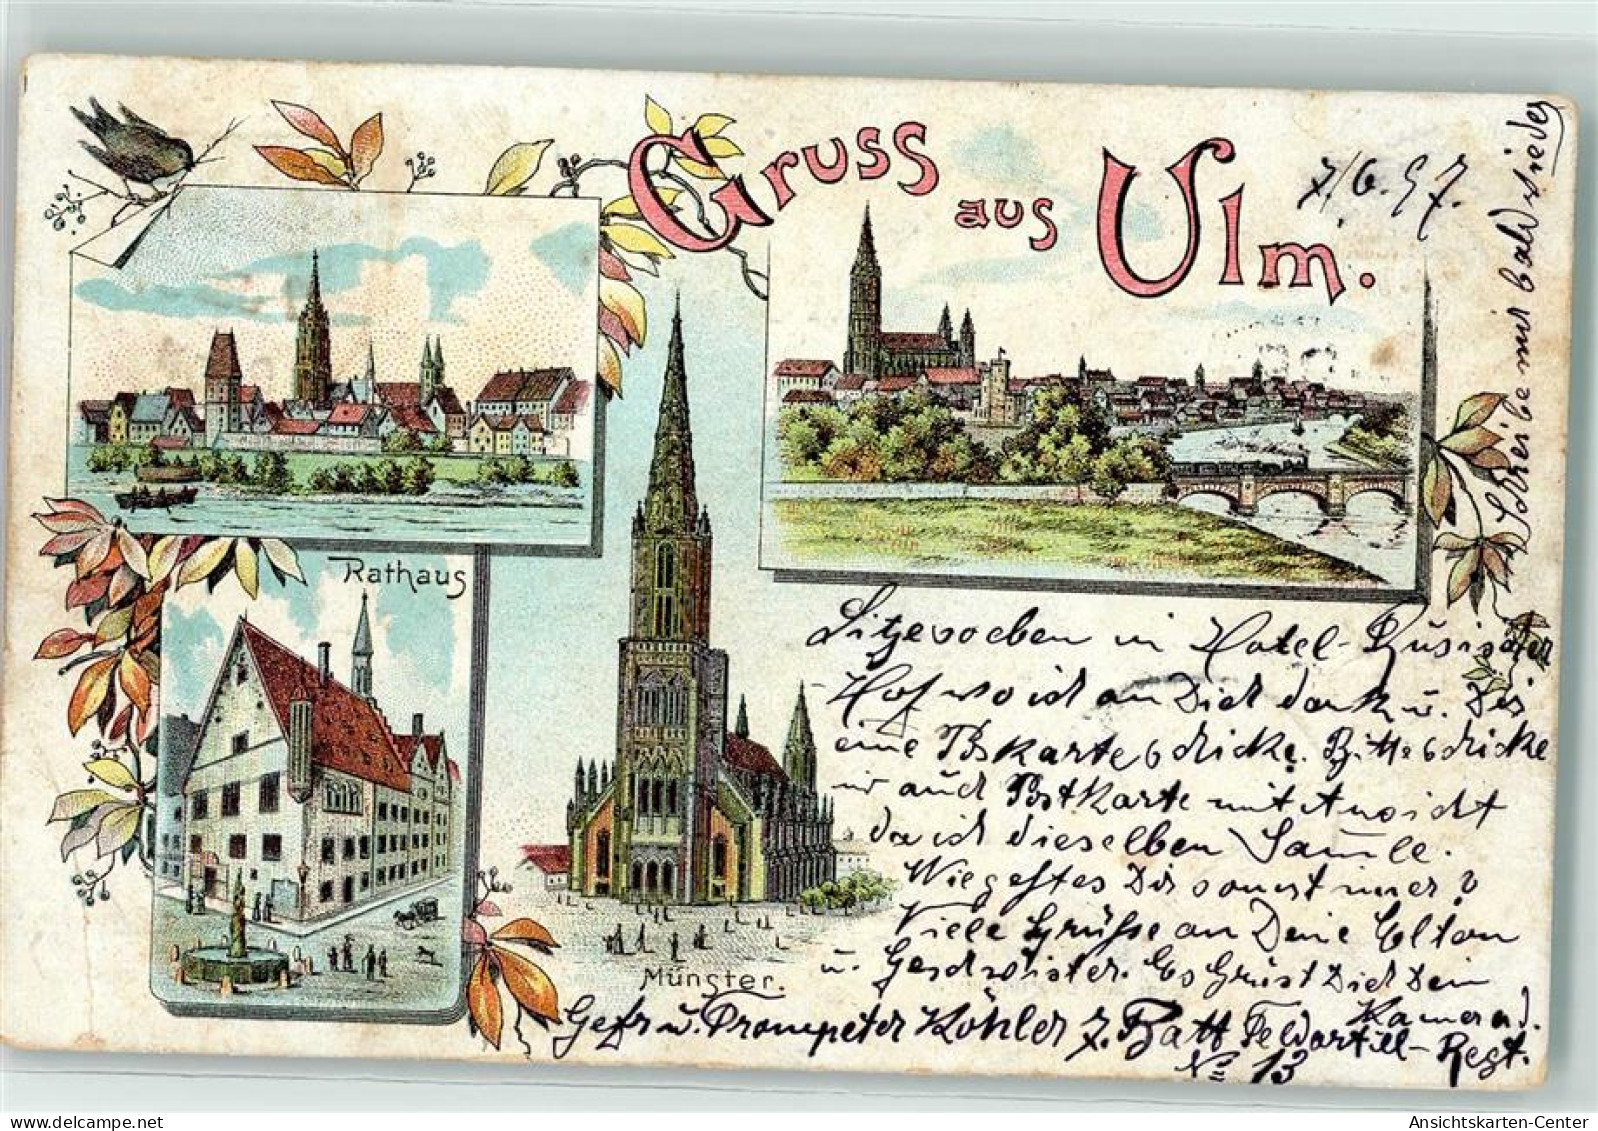 Gruss aus Ulm.
7/6.97.
Rathaus
Münster.
Sitze soeben in Hotel-Rusischer
Hof wo ich an Dich denk u. Dir
eine Postkarte schicke. Bitte schicke
mir auch Postkarte mit Ansicht
da ich dieselben Samle.
Wie gehtes Dir sonst imer?
Viele Grüße an Deine Eltern
u. Geschwister. Es Grüst Dich Dein
Kamerad.
Gefr u. Trompeter Köhler 7. Batt Feldartill-Regt.
No 13
Schreibe mir bald wieder
Ansichtskarten-Center